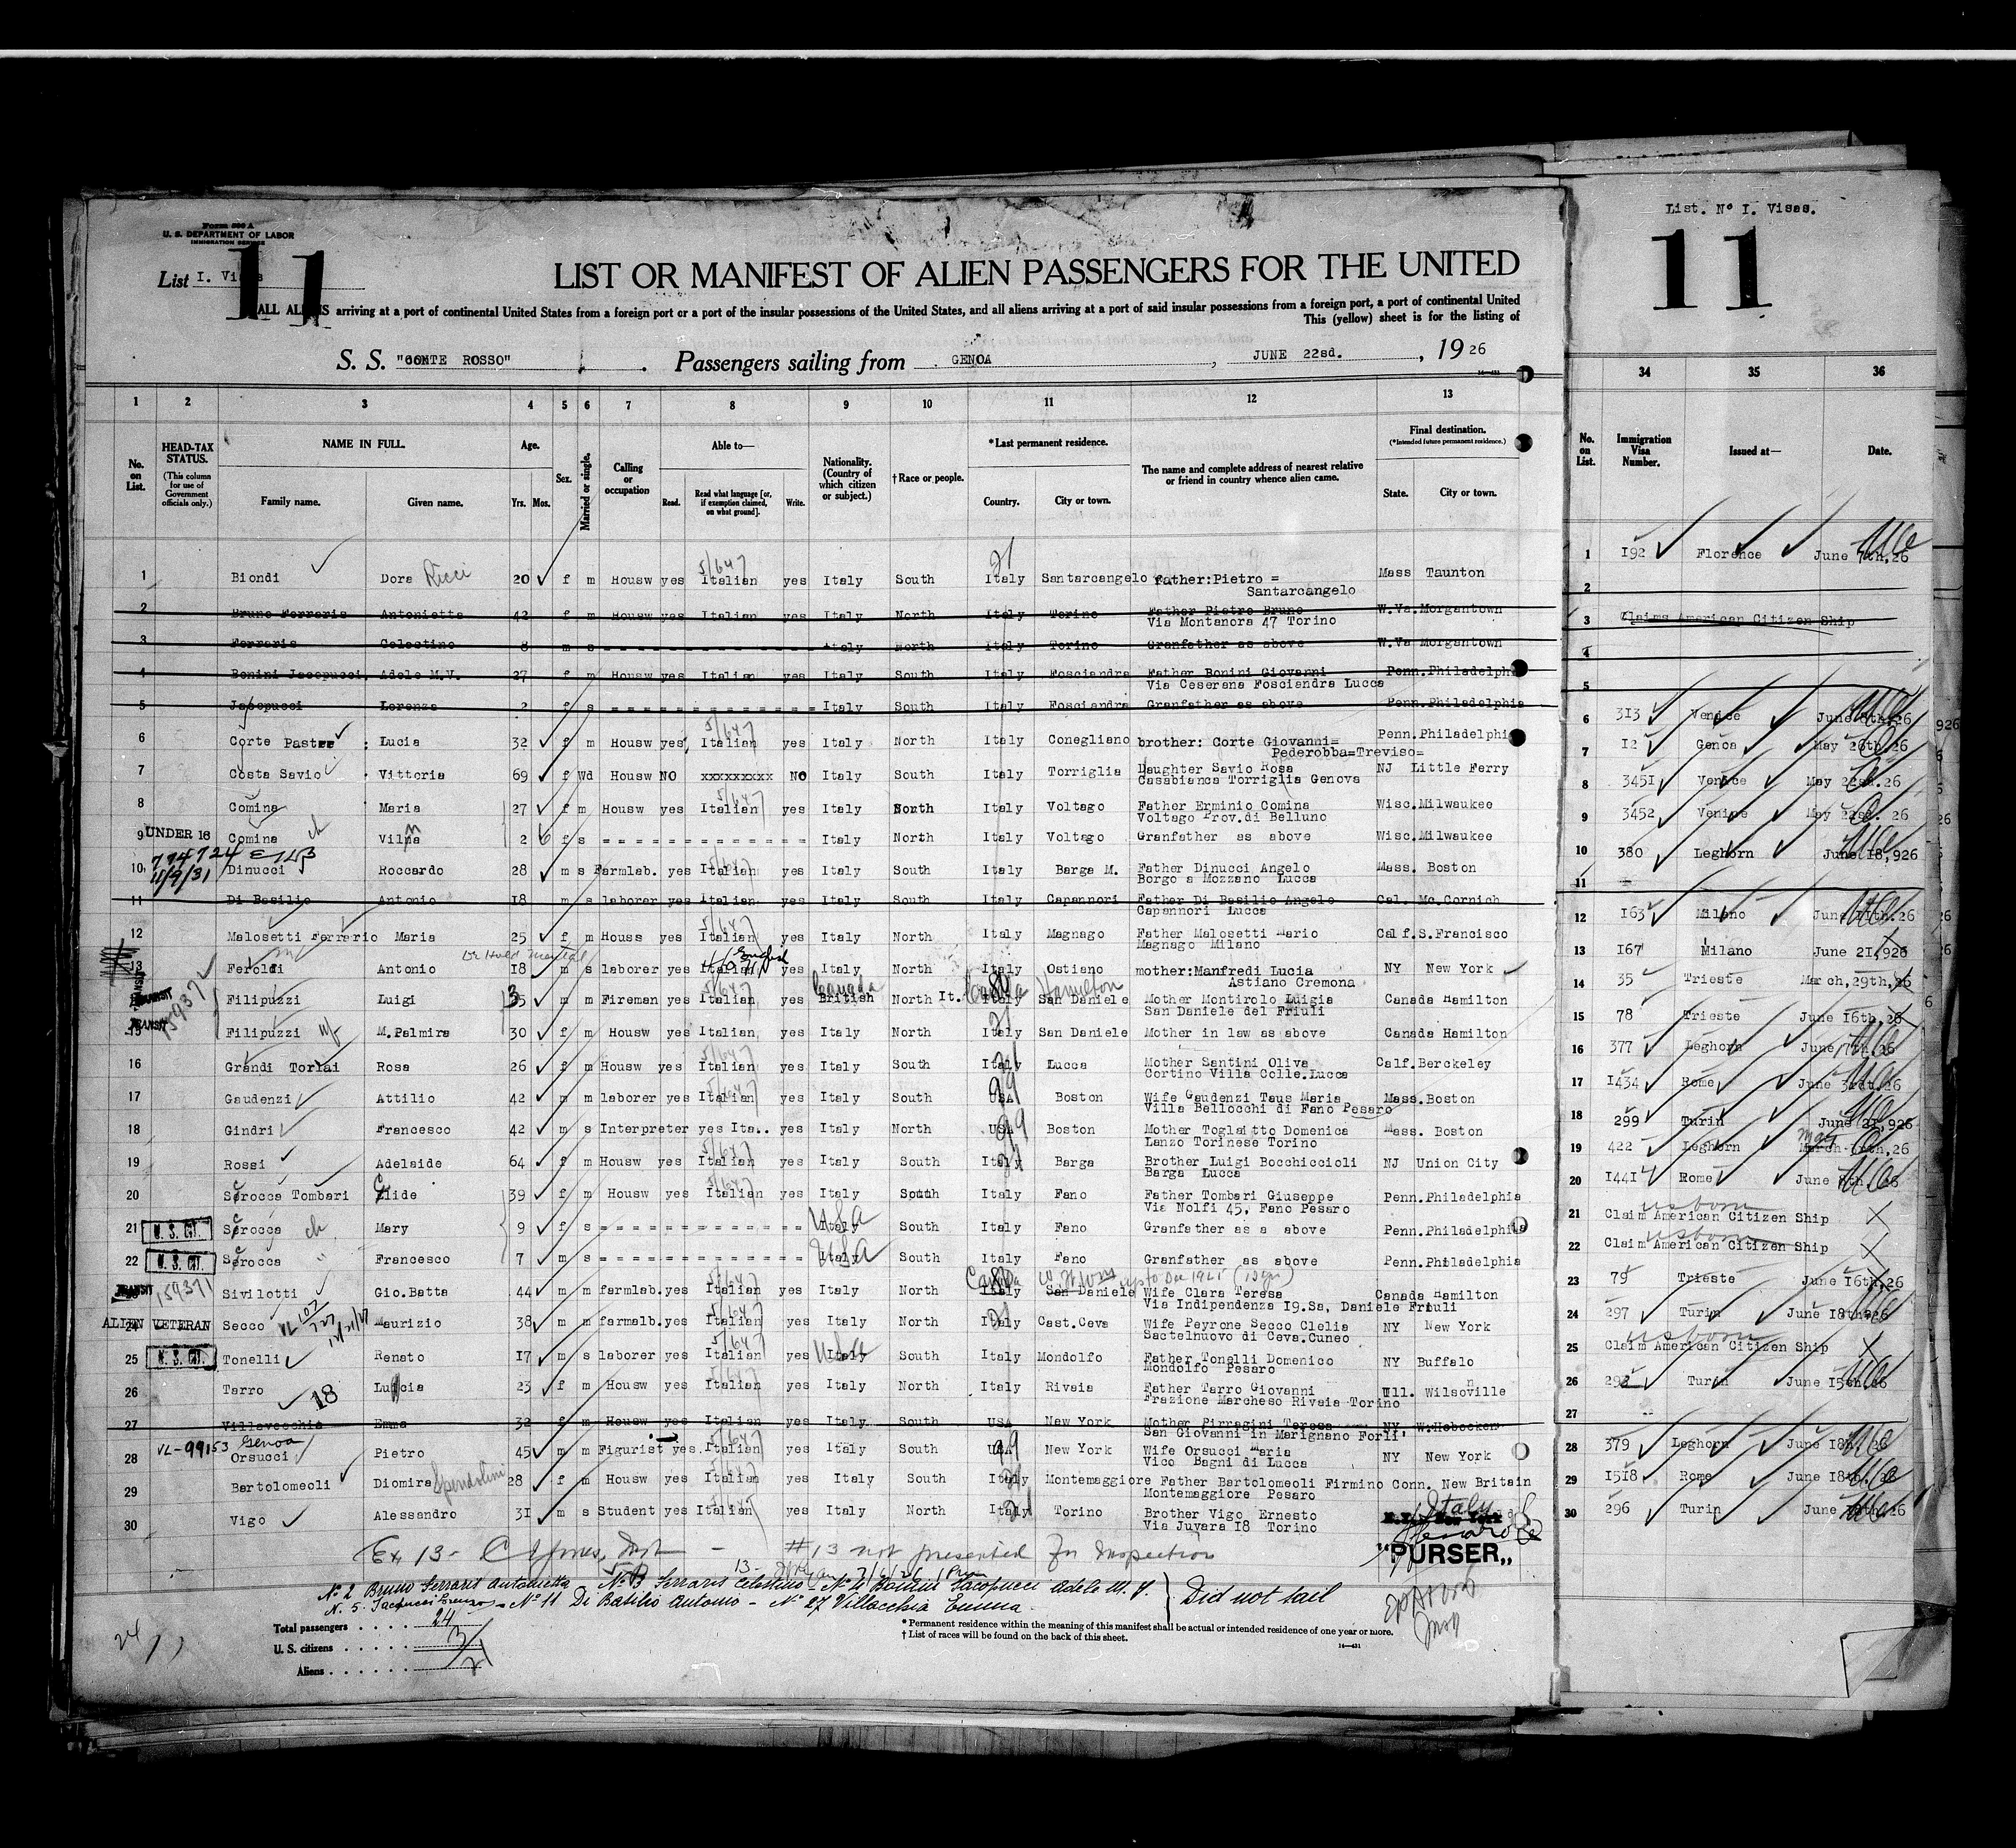 List. Nº I. Visas.
Form 500 A
U. S. DEPARTMENT OF LABOR
IMMIGRATION SERVICE
11
11
List I. Visas
LIST OR MANIFEST OF ALIEN PASSENGERS FOR THE UNITED
ALL ALIENS arriving at a port of continental United States from a foreign port or a port of the insular possessions of the United States, and all aliens arriving at a port of said insular possessions from a foreign port, a port of continental United
This (yellow) sheet is for the listing of
S. S. "CONTE ROSSO" . Passengers sailing from GENOA , JUNE 22sd. , 1926
1 2 3 4 5 6 7 8 9 10 11 12 13 34 35 36
No. on List.
HEAD-TAX STATUS. (This column for use of Government officials only.)
NAME IN FULL. Family name. Given name.
Age. Yrs. Mos.
Sex.
Married or single.
Calling or occupation
Able to— Read. Read what language [or, if exemption claimed, on what ground]. Write.
Nationality. (Country of which citizen or subject.)
†Race or people.
*Last permanent residence. Country. City or town.
The name and complete address of nearest relative or friend in country whence alien came.
Final destination. (*Intended future permanent residence.) State. City or town.
No. on List. Immigration Visa Number. Issued at— Date.
1 Biondi Dora Ricci 20 f m Housw yes Italian yes Italy South Italy Santarcangelo father:Pietro = Mass Taunton
Santarcangelo
1 192 Florence June 7th,26
2 Bruno Ferraris Antonietta 42 f m Housw yes Italian yes Italy North Italy Torino Father Pietro Bruno W.Va.Morgantown
Via Montanora 47 Torino
2
3 Ferraris Celestino 8 m s Italy North Italy Torino Granfather as above W.Va Morgantown
3 Claims American Citizen Ship
4 Bonini Jacopucci, Adele M.V. 27 f m Housw yes Italian yes Italy South Italy Fosciandra Father Bonini Giovanni Penn.Philadelphi
Via Ceserana Fosciandra Lucca
4
5 Jacopucci Lorenza 2 f s Italy South Italy Fosciandra Granfather as above Penn.Philadelphia
5
6 Corte Pastre Lucia 32 f m Housw yes Italian yes Italy North Italy Conegliano brother: Corte Giovanni= Penn.Philadelphi
Pederobba=Treviso=
6 313 Venice June 8th,26
7 Costa Savio Vittoria 69 f Wd Housw NO xxxxxxxxx NO Italy South Italy Torriglia Daughter Savio Rosa NJ Little Ferry
Casabianca Torriglia Genova
7 12 Genoa May 26th,26
8 Comina Maria 27 f m Housw yes Italian yes Italy North Italy Voltago Father Erminio Comina Wisc.Milwaukee
Voltago Prov.di Belluno
8 3451 Venice May 22sd.26
UNDER 16
9 Comina ch Vilma 2 6 f s Italy North Italy Voltago Granfather as above Wisc.Milwaukee
9 3452 Venice May 22sd. 26
774724
11/9/31
10 Dinucci Roccardo 28 m s Farmlab. yes Italian yes Italy South Italy Barga M. Father Dinucci Angelo Mass. Boston
Borgo a Mozzano Lucca
10 380 Leghorn June 18,926
11 Di Basilio Antonio 18 m s laborer yes Italian yes Italy South Italy Capannori Father Di Basilio Angelo Cal. Mc.Cornich
Capannori Lucca
11
12 Malosetti Ferrerio Maria 25 f m Houss yes Italian yes Italy North Italy Magnago Father Malosetti Mario Calf.S.Francisco
Magnago Milano
12 163 Milano June 11th.26
13 Feroldi Antonio 18 m s laborer yes Italian English yes Italy North Italy Ostiano mother:Manfredi Lucia NY New York
Astiano Cremona
13 167 Milano June 21,926
TRANSIT 159371
Filipuzzi Luigi 35 m m Fireman yes Italian yes British Canada North It. Italy Canada San Daniele Hamilton Mother Montirolo Luigia Canada Hamilton
San Daniele del Friuli
14 35 Trieste March,29th,26
TRANSIT
15 Filipuzzi M.Palmira 30 f m Housw yes Italian yes Italy North Italy San Daniele Mother in law as above Canada Hamilton
15 78 Trieste June 16th,26
16 Grandi Torlai Rosa 26 f m Housw yes Italian yes Italy South Italy Lucca Mother Santini Oliva Calf.Berckeley
Cortino Villa Colle.Lucca
16 377 Leghorn June 17th.26
17 Gaudenzi Attilio 42 m m laborer yes Italian yes Italy South USA Boston Wife Gaudenzi Taus Maria Mass.Boston
Villa Bellocchi di Fano Pesaro
17 1434 Rome June 3rdt.26
18 Gindri Francesco 42 m s Interpreter yes Ita.. yes Italy North USA Boston Mother Toglaitto Domenica Mass. Boston
Lanzo Torinese Torino
18 299 Turin June 21,926
19 Rossi Adelaide 64 f m Housw yes Italian yes Italy South Italy Barga Brother Luigi Bocchiccioli NJ Union City
Barga Lucca
19 422 Leghorn March May 26
20 Scrocca Tombari Clide 39 f m Housw yes Italian yes Italy South Italy Fano Father Tombari Giuseppe Penn.Philadelphia
Via Nolfi 45, Fano Pesaro
20 1441 Rome June 7th.26
21 U. S. CIT. Scrocca ch Mary 9 f s Italy USA South Italy Fano Granfather as a above Penn.Philadelphia
21 Claim American Citizen Ship us born
22 U. S. CIT. Scrocca " Francesco 7 m s Italy USA South Italy Fano Granfather as above Penn.Philadelphia
22 Claim American Citizen Ship us born
TRANSIT 159371 Sivilotti Gio.Batta 44 m m farmlab.yes Italian yes Italy North Italy Canada San Daniele Wife Clara Teresa Canada Hamilton
Via Indipendenza 19.Sa, Daniele Friuli
23 79 Trieste June 16th,26
24 ALIEN VETERAN Secco Maurizio 38 m m farmalb.yes Italian yes Italy North Italy Cast.Ceva Wife Peyrone Secco Clelia NY New York
Sactelnuovo di Ceva.Cuneo
24 297 Turin June 18th.26
25 U. S. CIT. Tonelli Renato 17 m s laborer yes Italian yes Italy USA South Italy Mondolfo Father Tonelli Domenico NY Buffalo
Mondolfo Pesaro
25 Claim American Citizen Ship us born
26 Tarro 18 Lucia 23 f m Housw yes Italian yes Italy North Italy Rivaia Father Tarro Giovanni Ill. Wilsonville
Frazione Marcheso Rivaia Torino
26 293 Turin June 15th.26
27 Villavecchia Emma 32 f m Housw yes Italian yes Italy South USA New York Mother Pirragini Teresa NY W.Hobocken
San Giovanni in Marignano Forli,
27
VL-99153 Genoa
28 Orsucci Pietro 45 m m Figurist yes Italian yes Italy South USA New York Wife Orsucci Maria NY New York
Vico Bagni di Lucca
28 379 Leghorn June 18th.26
29 Bartolomeoli Diomira Spendolini 28 f m Housw yes Italian yes Italy South Italy Montemaggiore Father Bartolomeoli Firmino Conn. New Britain
Montemaggiore Pesaro
29 1518 Rome June 18th.26
30 Vigo Alessandro 31 m s Student yes Italian yes Italy North Italy Torino Brother Vigo Ernesto N.Y. New York Italy
Via Juvara 18 Torino
30 296 Turin June 18th.26
# 13 not presented for Inspection
"PURSER„
Nº 2 Bruno Ferraris Antonietta - Nº 3 Ferraris Celestino - Nº 4 Bonini Jacopucci Adele M. V.
N. 5. Jacopucci Lorenza - Nº 11 Di Basilio Antonio - Nº 27 Villacchia Emma - Did not sail
Total passengers . . . . 24
U. S. citizens . . . . . 3
Aliens . . . . . . 21
* Permanent residence within the meaning of this manifest shall be actual or intended residence of one year or more.
† List of races will be found on the back of this sheet.
14—431